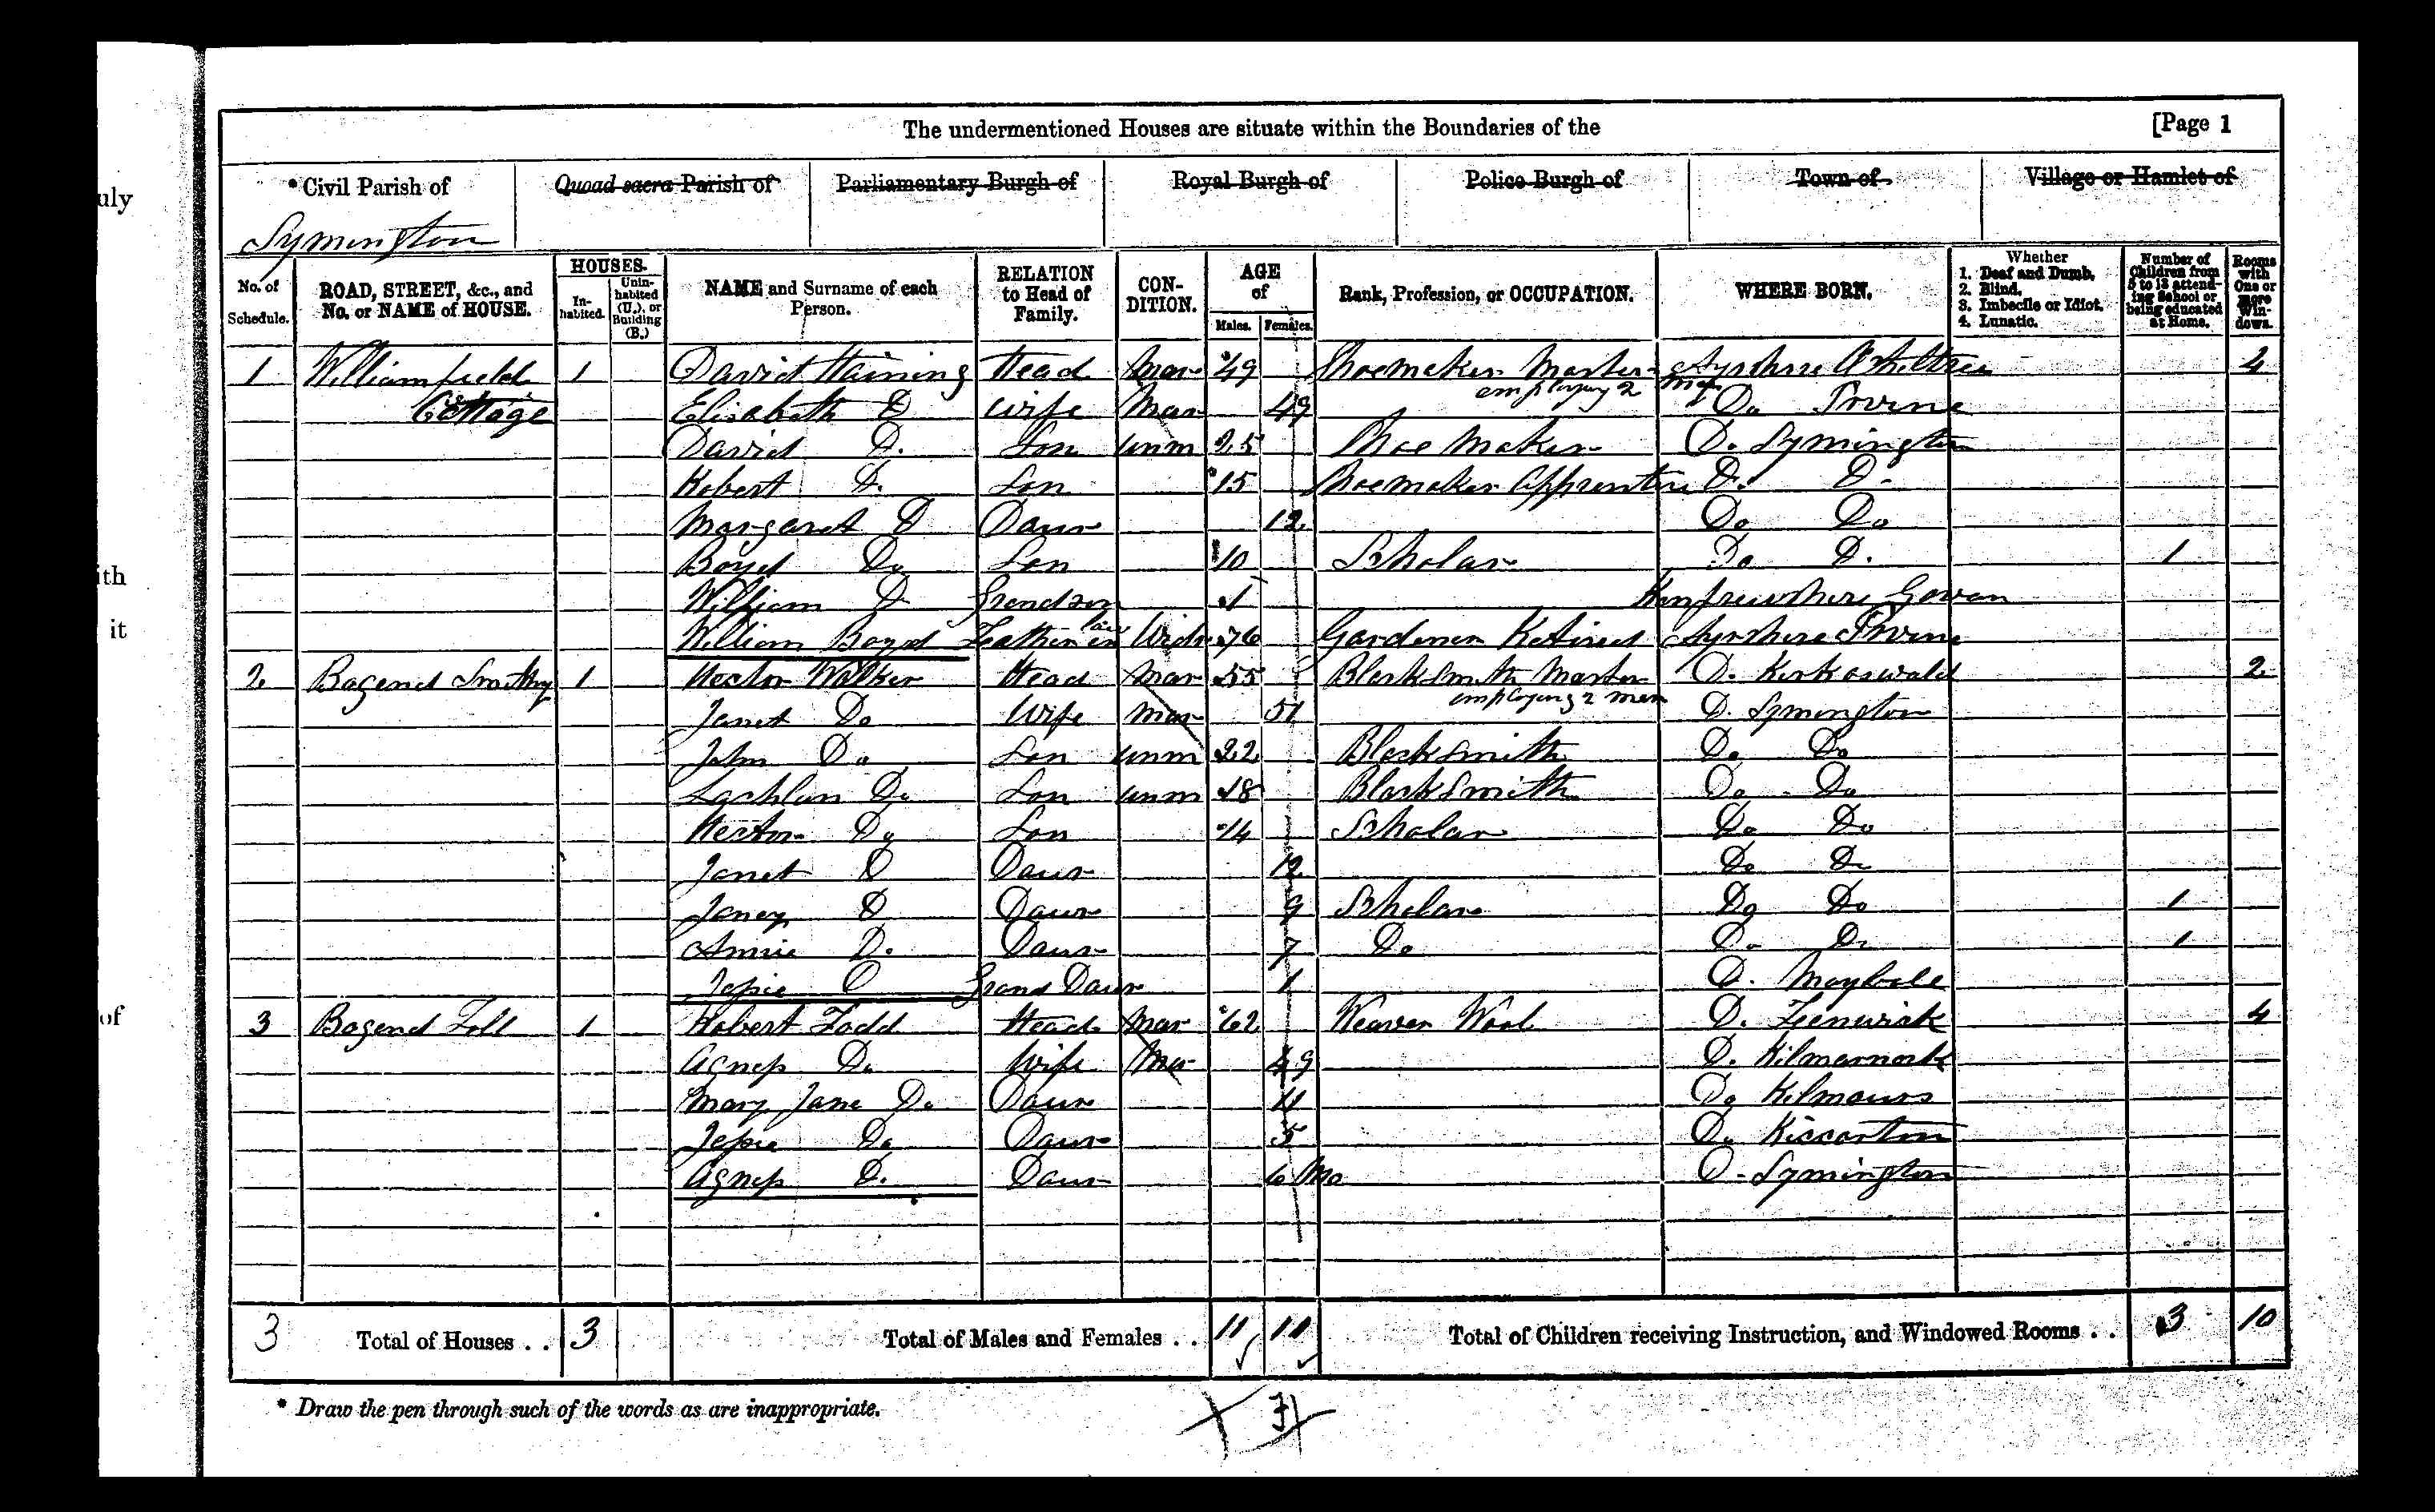 The undermentioned Houses are situate within the Boundaries of the [Page 1
*Civil Parish of Quoad sacra Parish of Parliamentary Burgh of Royal Burgh of Police Burgh of Town of Village or Hamlet of
Symington
No. of Schedule. ROAD, STREET, &c., and No. or NAME of HOUSE. HOUSES. In-habited. Unin-habited (U.), or Building (B.) NAME and Surname of each Person. RELATION to Head of Family. CON-DITION. AGE of Males. Females. Rank, Profession, or OCCUPATION. WHERE BORN. Whether 1. Deaf and Dumb. 2. Blind. 3. Imbecile or Idiot. 4. Lunatic. Number of Children from 5 to 13 attend-ing School or being educated at Home. Rooms with One or more Win-dows.
1 Williamfield 1 David Haining Head Mar 49 Shoemaker Master Ayrshire Ochiltree 4
Cottage Elisabeth D Wife Mar 49 employing 2 men Do Irvine
David D. Son unm 25 Shoe Maker D. Symington
Robert D. Son 15 Shoemaker Apprentice D. D.
Margaret D Daur 12 Do Do
Boyd Do Son 10 Scholar Do D. 1
William D Grandson 1 Renfrewshire Govan
William Boyd Father in law Widr 76 Gardener Retired Ayrshire Irvine
2 Bogend Smithy 1 Hector Walker Head Mar 55 Blacksmith Master D. Kirkoswald 2
Janet Do Wife Mar 51 employing 2 men D. Symington
John Do Son unm 22 Blacksmith Do Do
Lachlan Do Son unm 18 Blacksmith Do Do
Hector Do Son 14 Scholar Do Do
Janet D Daur 12 Do Do
D Daur 9 Scholar Do Do 1
Annie D. Daur 7 Do D. D. 1
Jessie D Grand Daur 1 D. Maybole
3 Bogend Toll 1 Robert Todd Head Mar 62 Weaver Wool D. Feenwick 4
Agness D. Wife Mar 49 D. Kilmarnock
Mary Jane Do Daur 11 Do Kilmaurs
Jessie Do Daur 5 Do Riccarton
Agness D. Daur 6 Mo D. Symington
3 Total of Houses . . 3 Total of Males and Females . . 11 11 Total of Children receiving Instruction, and Windowed Rooms . . 3 10
* Draw the pen through such of the words as are inappropriate.